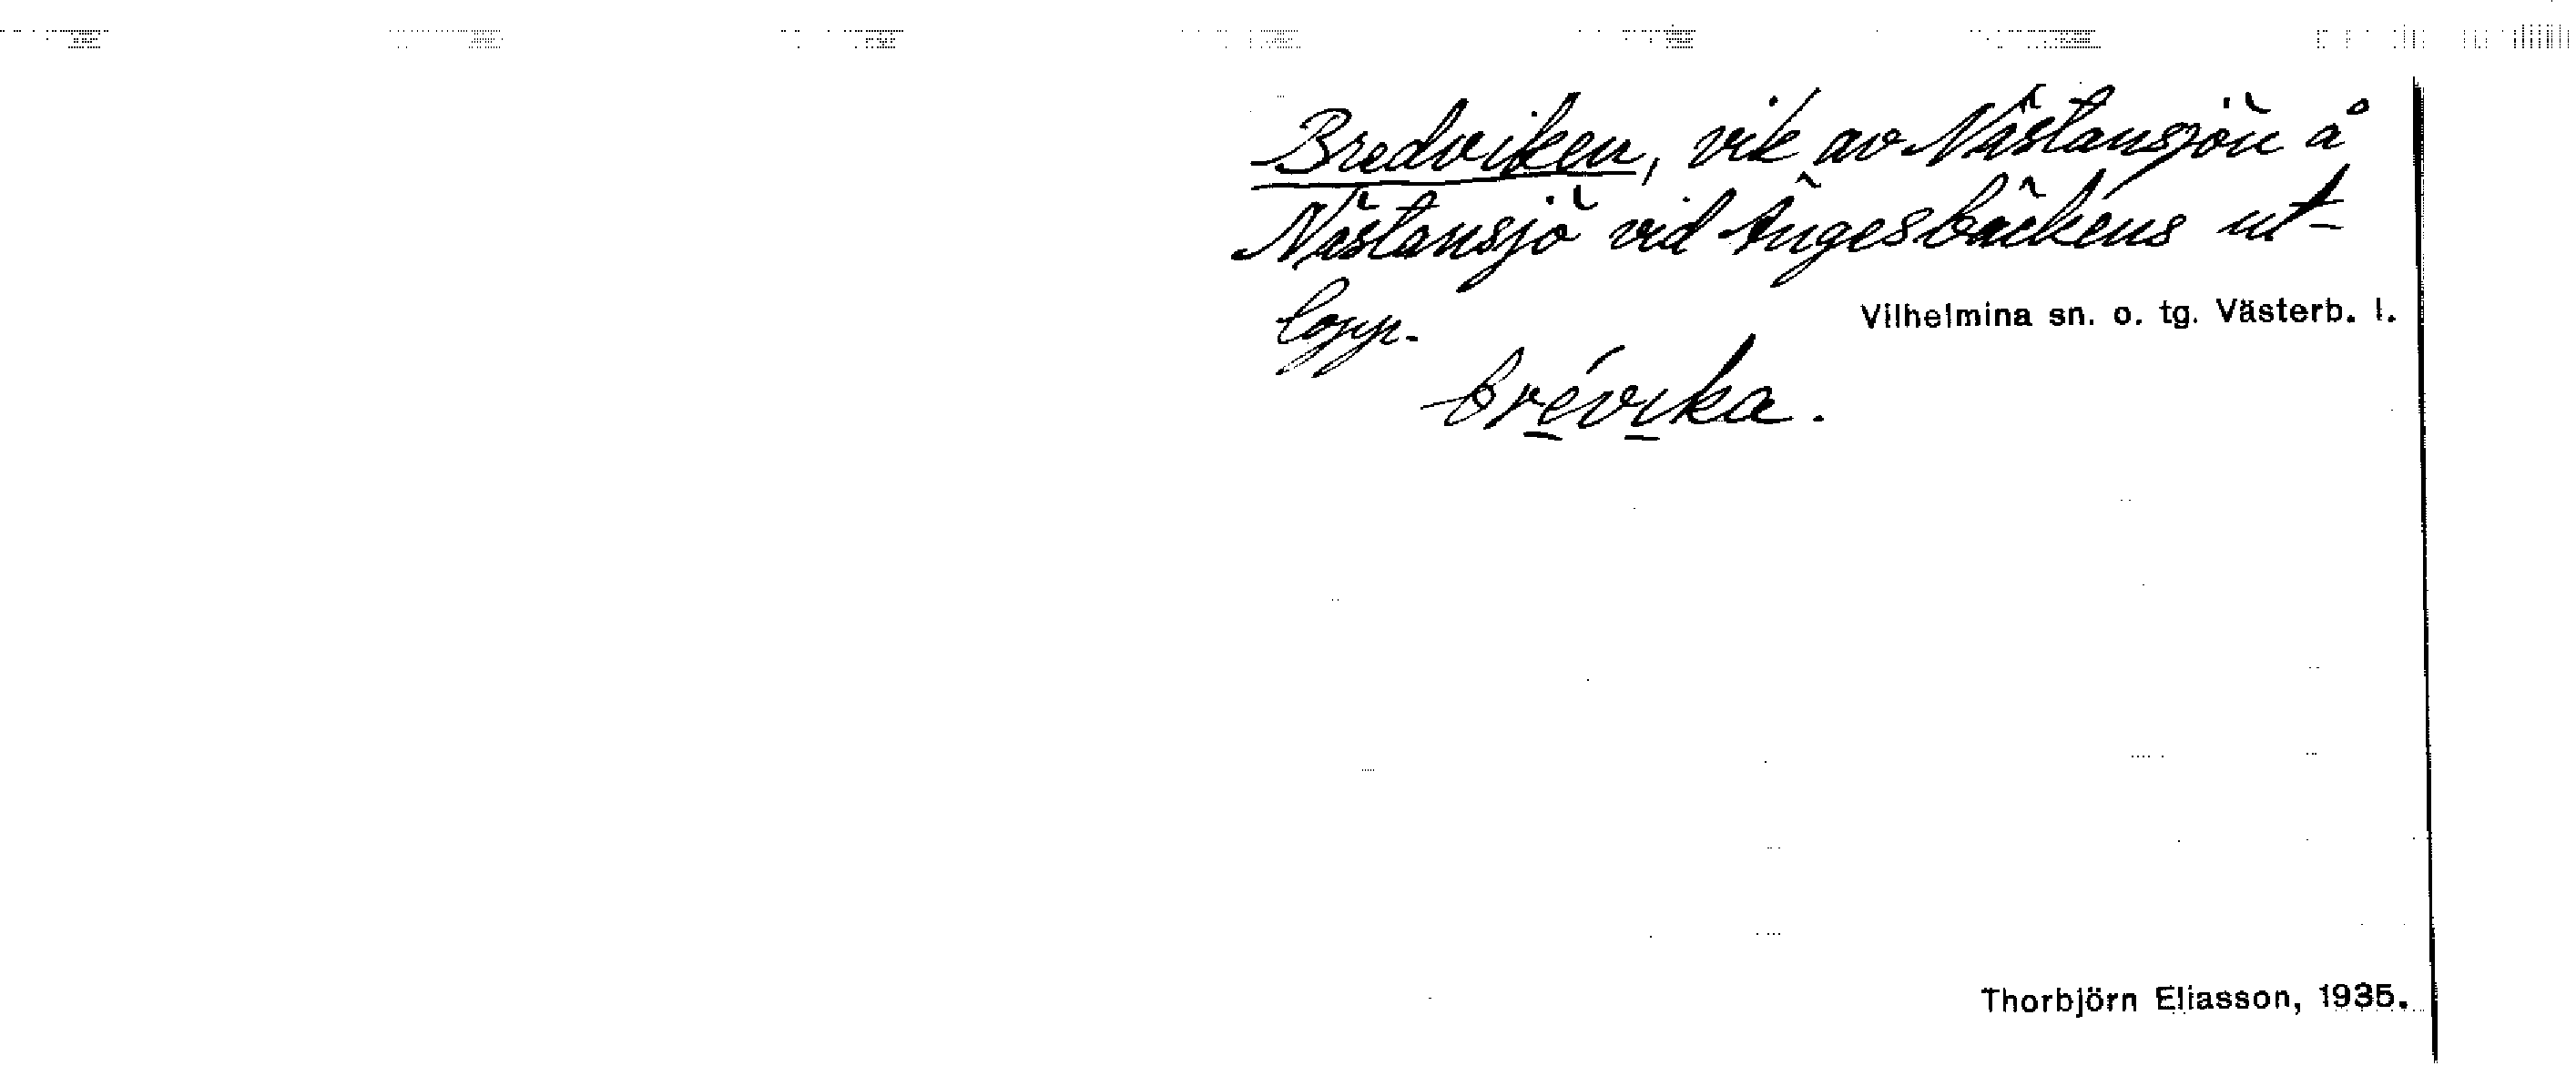 Bredviken, vik av Nästansjön å
Nästansjö vid Ängesbäckens ut-
lopp.
Vilhelmina sn. o. tg. Västerb. l.
brévika.
Thorbjörn Eliasson, 1935.